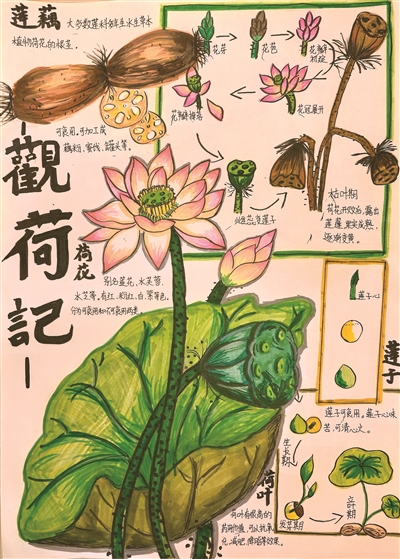 莲藕
大多数莲科多年生水生草本
植物荷花的根茎。
可食用,可加工成
藕粉、蜜饯、罐头等。
觀荷記
花芽
花苞
花瓣初绽
花冠展开
花瓣掉落
枯叶期
荷花开败后,露出
莲蓬,果实成熟,
逐渐变黄。
荷花
别名莲花、水芙蓉、
水芝等。有红、粉红、白、紫等色。
莲子心
莲子
莲子可食用。莲子心味
苦,可清心火。
生长期
发芽期
立叶期
荷叶
荷叶有很高的
药用价值,可以抗氧
化、减肥、降脂等效果。